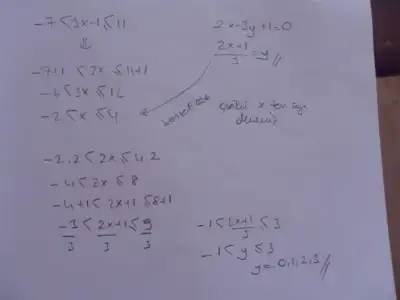 -7 < 3x-1 ≤ 11
⇓
-7+1 < 3x ≤ 11+1
-6 < 3x ≤ 12
-2 < x ≤ 4
2x-3y+1=0
2x+1/3 = y //
çünkü x tam sayı
-2.2 < 2x ≤ 4.2
-4 < 2x ≤ 8
-4+1 < 2x+1 ≤ 8+1
-3/3 < 2x+1/3 ≤ 9/3
-1 < 2x+1/3 ≤ 3
-1 < y ≤ 3
y= 0,1,2,3 //